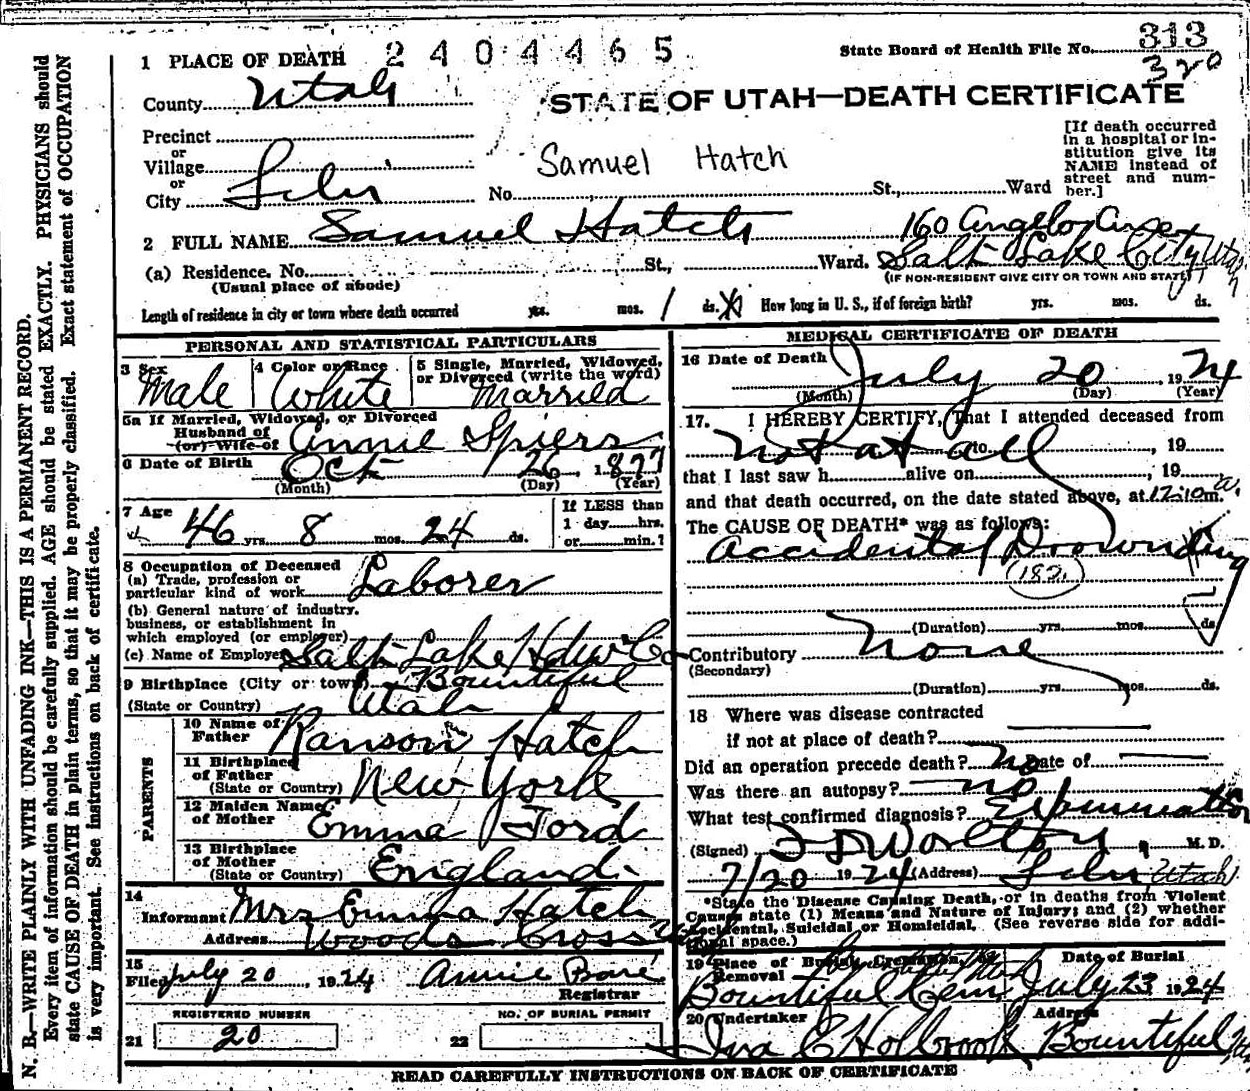 2404465
State Board of Health File No. 313
320
1 PLACE OF DEATH
County Utah
STATE OF UTAH—DEATH CERTIFICATE
Precinct
or
Village
or
City Lehi
[If death occurred in a hospital or in-
stitution give its
NAME instead of
street and num-
ber.]
Samuel Hatch
No. St., Ward
2 FULL NAME Samuel Hatch
160
(a) Residence. No. St., Ward. Salt Lake City Utah
(Usual place of abode) (IF NON-RESIDENT GIVE CITY OR TOWN AND STATE)
Length of residence in city or town where death occurred yrs. mos. 1 ds. How long in U. S., if of foreign birth? yrs. mos. ds.
PERSONAL AND STATISTICAL PARTICULARS
3 Sex Male
4 Color or Race White
5 Single, Married, Widowed, or Divorced (write the word) Married
5a If Married, Widowed, or Divorced
Husband of
(or) Wife of Annie Spiers
6 Date of Birth Oct 26, 1877
(Month) (Day) (Year)
7 Age 46 yrs. 8 mos. 24 ds.
If LESS than
1 day hrs.
or min.?
8 Occupation of Deceased
(a) Trade, profession or
particular kind of work Laborer
(b) General nature of industry.
business, or establishment in
which employed (or employer)
(c) Name of Employer Salt Lake Hdw Co
9 Birthplace (City or town) Bountiful
(State or Country) Utah
PARENTS
10 Name of
Father Ranson Hatch
11 Birthplace
of Father
(State or Country) New York
12 Maiden Name
of Mother Emma Ford
13 Birthplace
of Mother
(State or Country) England
14
Informant Mrs Emma Hatch
Address Woods Cross
15
Filed July 20 1924 Annie
Registrar
REGISTERED NUMBER
21 20
NO. OF BURIAL PERMIT
22
MEDICAL CERTIFICATE OF DEATH
16 Date of Death July 20, 1924
(Month) (Day) (Year)
17. I HEREBY CERTIFY, That I attended deceased from
not at all to , 19
that I last saw h alive on , 19
and that death occurred, on the date stated above, at 12:10 a. m.
The CAUSE OF DEATH* was as follows:
Accidental Drownding
(182)
(Duration) yrs. mos. ds.
Contributory None
(Secondary)
(Duration) yrs. mos. ds.
18 Where was disease contracted
if not at place of death?
Did an operation precede death? No Date of
Was there an autopsy? no
What test confirmed diagnosis?
(Signed) M. D.
7/20 1924 (Address) Lehi Utah
*State the Disease Causing Death, or in deaths from Violent
Causes state (1) Means and Nature of Injury; and (2) whether
Accidental, Suicidal or Homicidal. (See reverse side for addi-
tional space.)
19 Place of Burial, Cremation, or
Removal
Bountiful Cem.
Date of Burial
July 23 1924
20 Undertaker Address
Iva C Holbrook Bountiful
READ CAREFULLY INSTRUCTIONS ON BACK OF CERTIFICATE
N. B.—WRITE PLAINLY WITH UNFADING INK—THIS IS A PERMANENT RECORD.
Every item of information should be carefully supplied. AGE should be stated EXACTLY. PHYSICIANS should
state CAUSE OF DEATH in plain terms, so that it may be properly classified. Exact statement of OCCUPATION
is very important. See instructions on back of certificate.